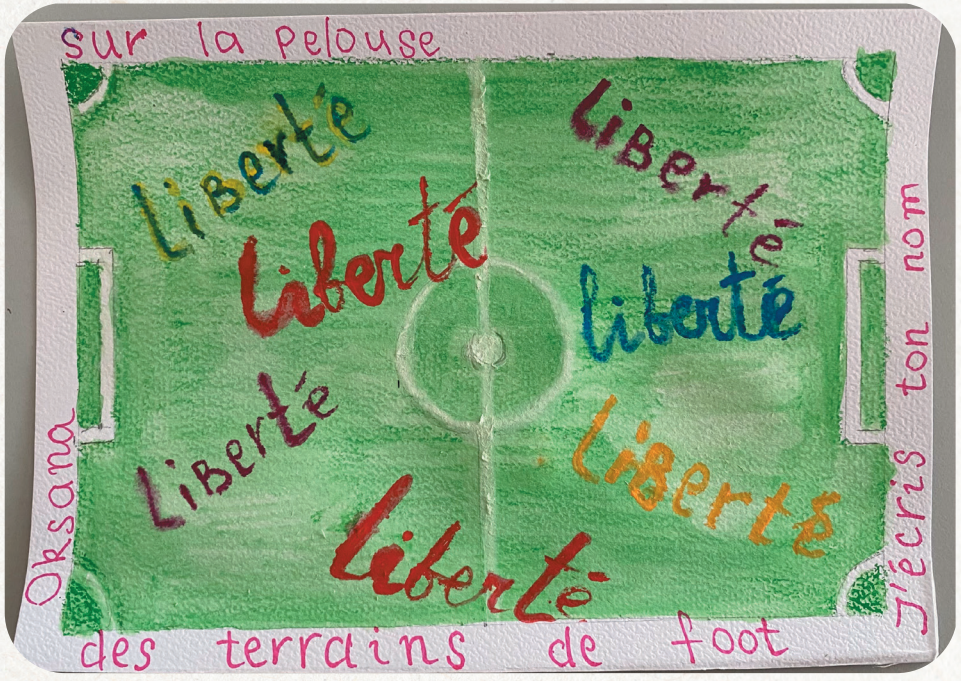 sur la pelouse
Liberté
Liberté
Liberté
liberté
Liberté
Liberté
Liberté
des terrains de foot
J'écris ton nom
Oksana